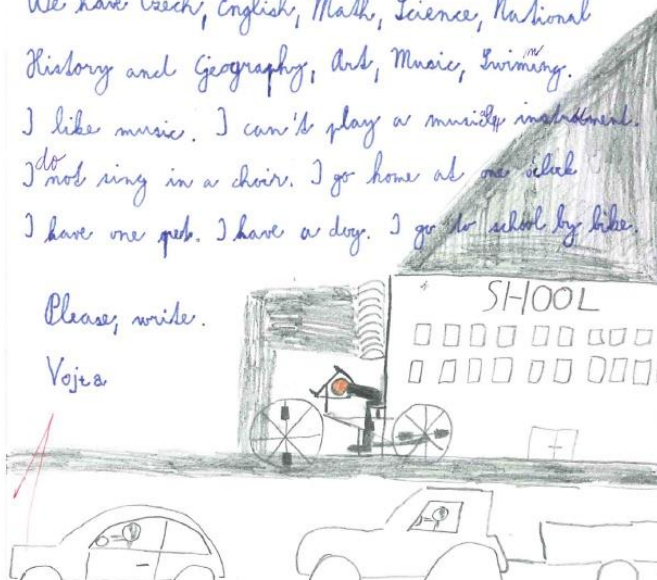 We have Czech, English, Math, Science, National
History and Geography, Art, Music, Swimming.
I like music. I can't play a musical instrument.
I do not sing in a choir. I go home at one o'clock
I have one pet. I have a dog. I go to school by bike.
Please, write.
Vojta
SHOOL